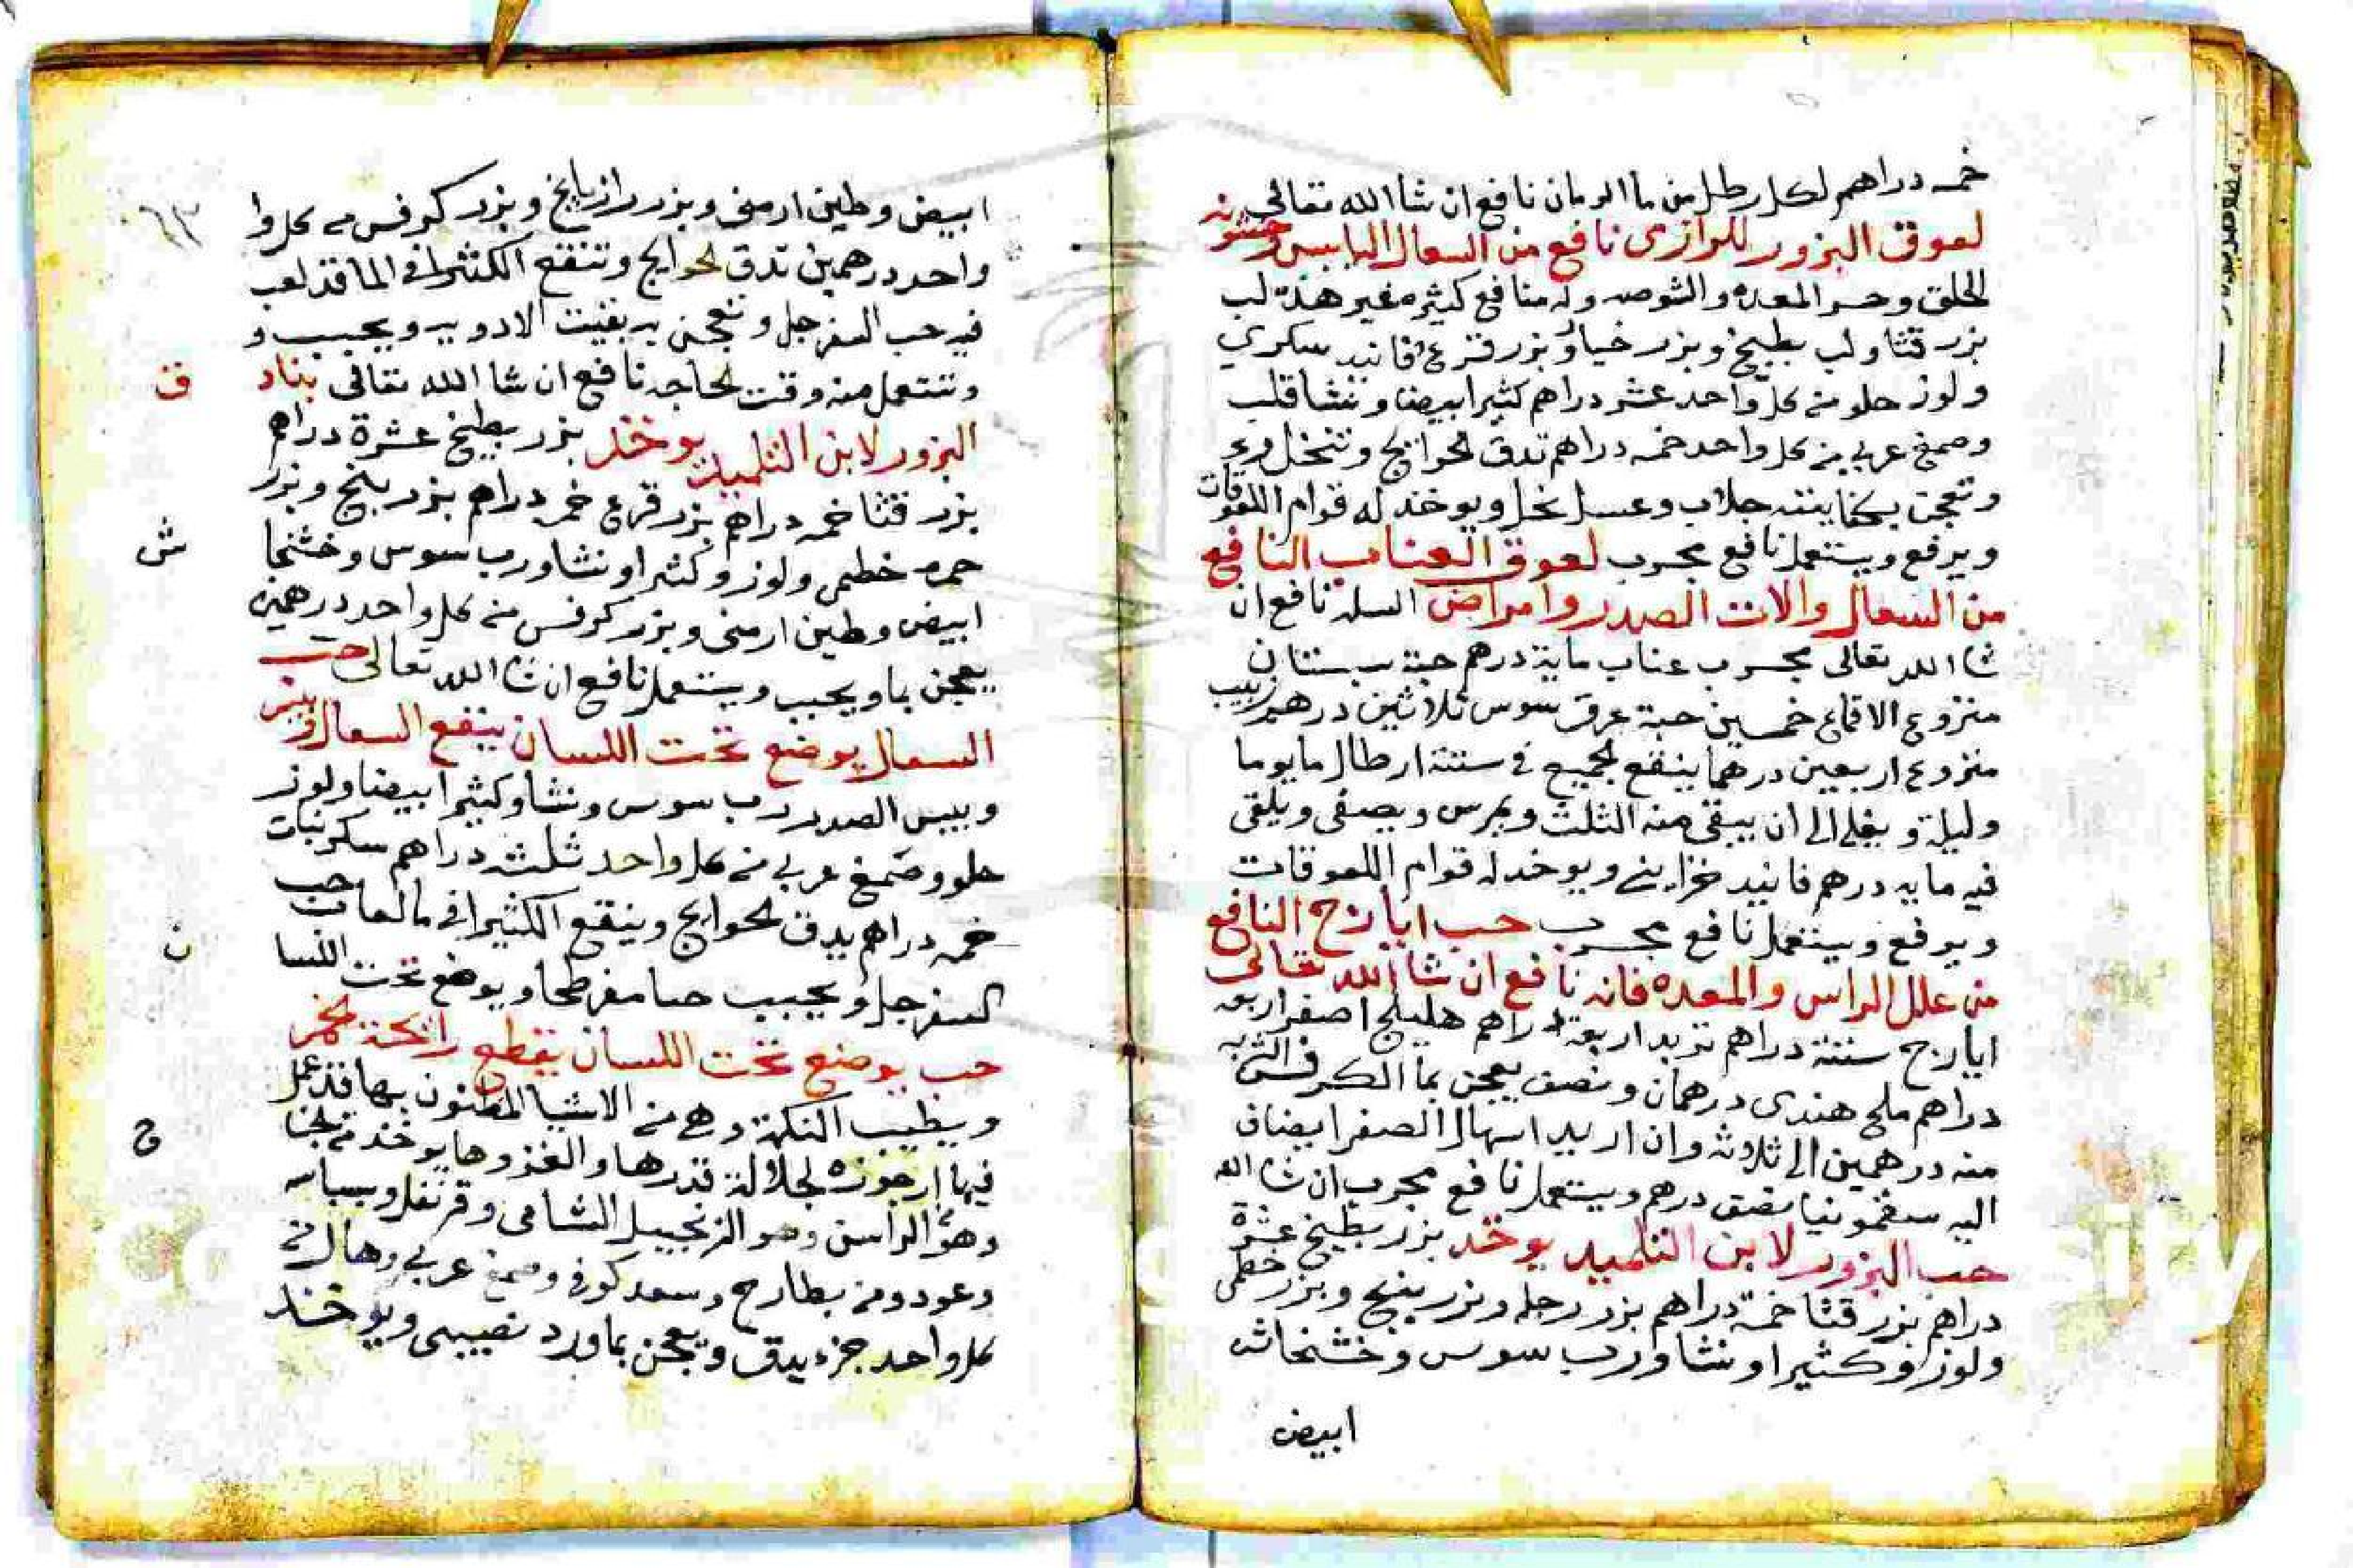 خمسه دراهم لكل رطل من ما الرمان نافع ان شا الله تعالى
لعوق البزور للرازى نافع من السعال اليابس وخشونه
الحلق وحر المعده والشوصه وله منافع كثيره غير هذه لب
بزر قثا ولب بطيخ وبزر خيار وبزر قرع فانيد سكري
ولوز حلو من كل واحد عشر دراهم كثيرا بيضا ونشا قلب
وصمغ عربي من كل واحد خمسه دراهم تدق الحوايج وتنخل
وتعجن بكفايته جلاب وعسل نحل ويوخد له قوام اللعوقات
ويرفع ويستعمل نافع مجرب لعوق العناب النافع
من السعال والات الصدر وامراض السله نافع ان
شا الله تعالى مجرب عناب مايه درهم حبة سبستان
منزوع الاقماع خمسين حبة عرق سوس ثلاثين درهم زبيب
منزوع اربعين درهما ينقع الجميع في ستة ارطال ما يوما
وليلة ويغلى الى ان يبقى منه الثلث ويمرس ويصفى ويلقى
فيه مايه درهم فانيد خزايني ويوخد له قوام اللعوقات
ويرفع ويستعمل نافع مجرب حب ايارج النافع
من علل الراس والمعده فانه نافع ان شا الله تعالى
ايارج ستة دراهم تربد اربعة دراهم هليلج اصفر اربعه
دراهم ملح هندى درهمان ونصف يعجن بما الكرفس الشربه
منه درهمين الى ثلاثه وان اريد اسهال الصفرا يضاف
اليه سقمونيا نصف درهم ويستعمل نافع مجرب ان شا الله
حب البزور لابن التلميد يوخد بزر بطيخ عشرة
دراهم بزر قثا خمسة دراهم بزر رجله وبزر بنج وبزر خطمى
ولوز وكثيرا ونشا ورب سوس وخشخاش
ابيض
ابيض وطين ارمنى وبزر رازيانج وبزر كرفس من كل وا
واحد درهمين تدق الحوايج وتنقع الكثيرا في الما قد لعب
فيه حب السفرجل وتعجن به بقيت الادويه ويحبب و
وتستعمل منه وقت الحاجه نافع ان شا الله تعالى بناد
ق
البزور لابن التلميد يوخد بزر بطيخ عشرة دراهم
بزر قثا خمسه دراهم بزر قرع خمسه دراهم بزر بنج وبزر
حمره خطمى ولوز وكثيرا ونشا ورب سوس وخشخا
ش
ابيض وطين ارمنى وبزر كرفس من كل واحد درهمين
يعجن بما ويحبب ويستعمل نافع ان شا الله تعالى حب
السعال يوضع تحت اللسان ينفع السعال
ويبس الصدر رب سوس ونشا وكثيرا بيضا ولوز
حلو وصمغ عربي من كل واحد ثلثه دراهم سكر نبات
خمسه دراهم يدق الحوايج وينقع الكثيرا في ما لعاب حب
السفرجل ويحبب حبا مفرطحا ويوضع تحت اللسا
ن
حب يوضع تحت اللسان يقطع رائحة الخمر
ويطيب النكهة وهي من الاشيا المظنون بها قد عمل
فيها ارجوزه لجلالة قدرها والغزوها يوخد من الخنا
ح
وهو الراسن وهو الزنجبيل الشامى وقرنفل وبسباسه
وعود ومن بطارح وسعد كوفي وصمغ عربي وهال من
كل واحد جزء يدق ويعجن بماورد نصيبى ويوخد